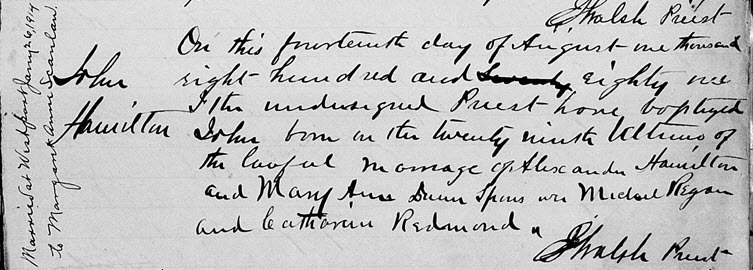 J Walsh Priest
Married at Westport Jany 26, 1914
to Margaret Ann Scanlan.
John
Hamilton
On this fourteenth day of August one thousand
eight hundred and Seventy Eighty one
I the undersigned Priest have baptized
John born on the twenty ninth Ultimo of
the lawful marriage of Alexander Hamilton
and Mary Ann Dunn Spons were Michael Regan
and Catharin Redmond
J Walsh Priest